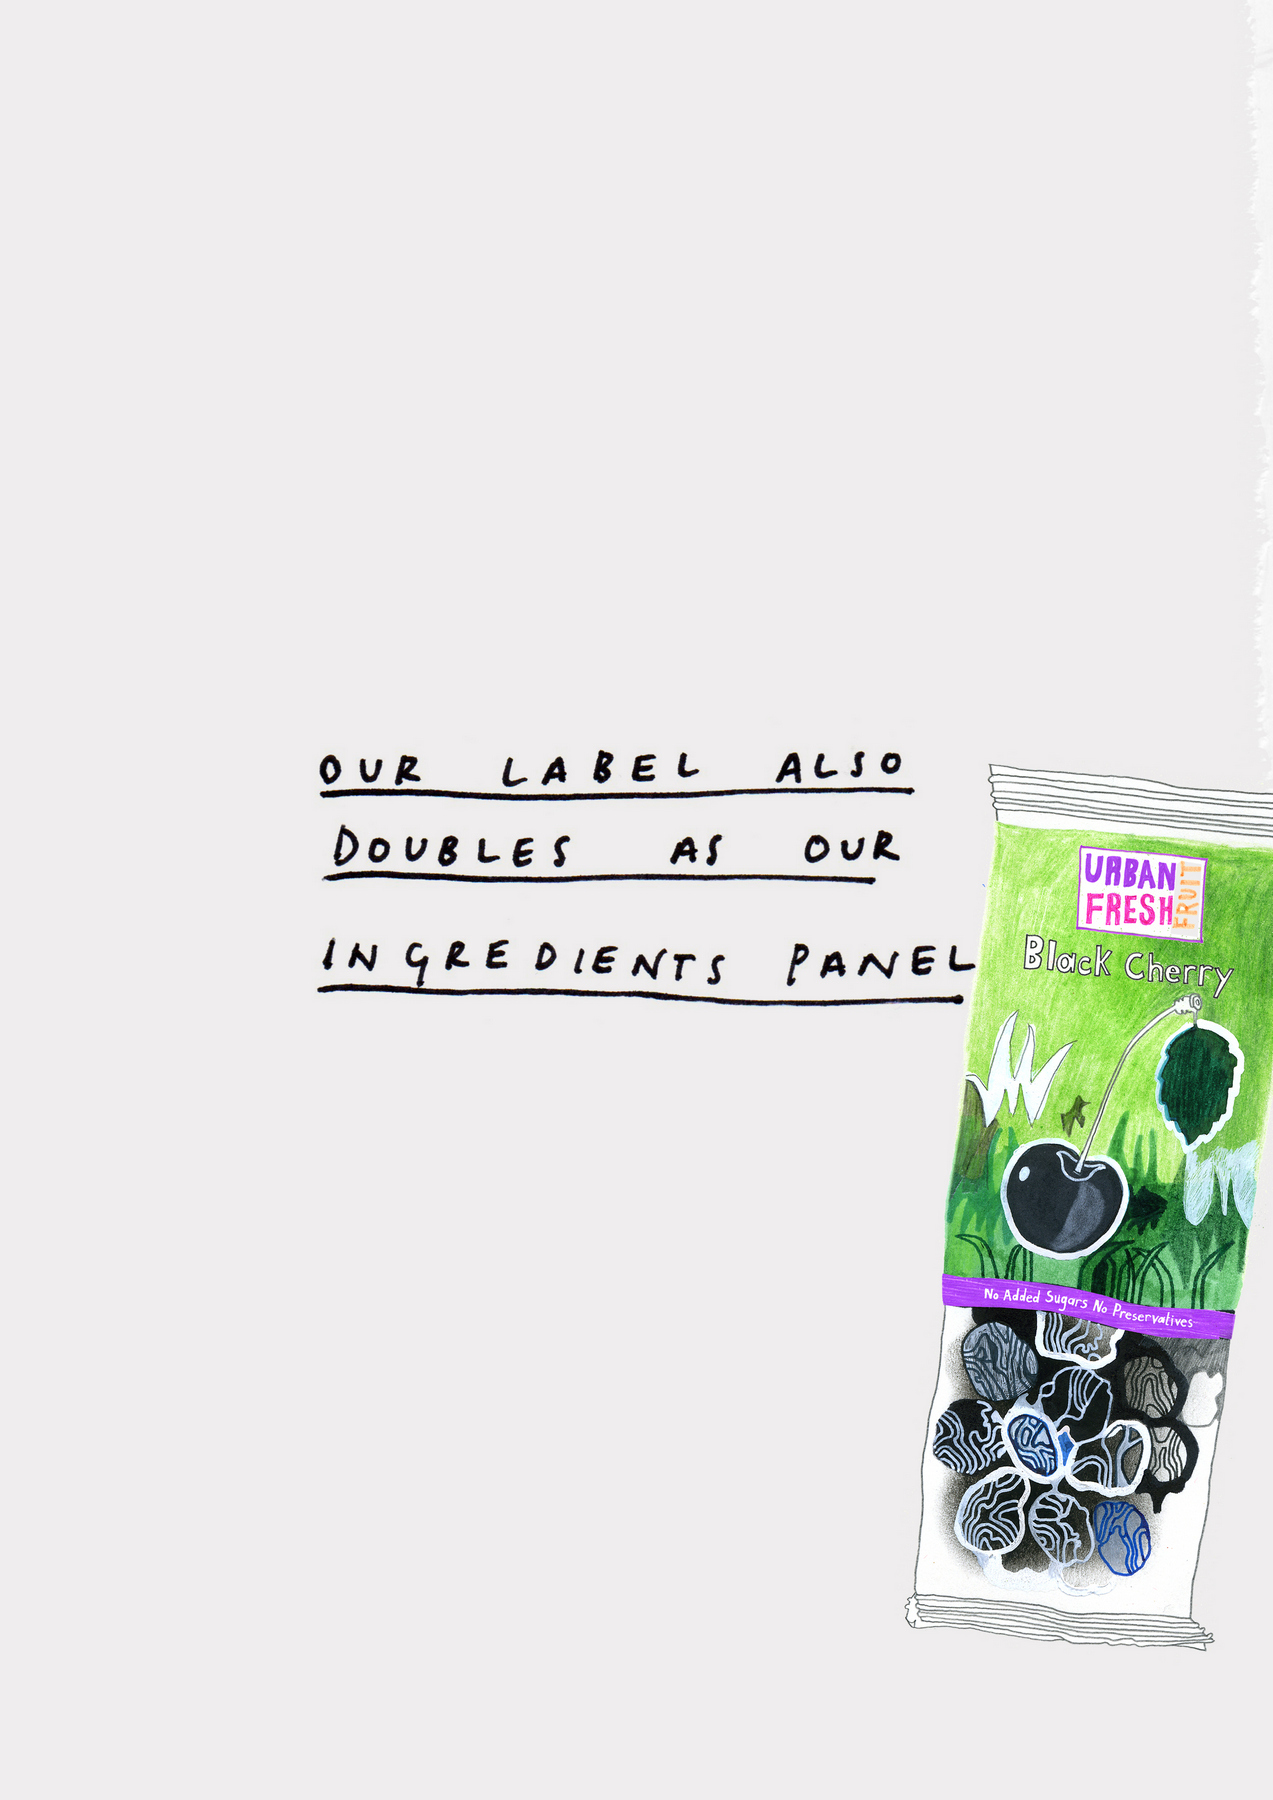 OUR LABEL ALSO
DOUBLES AS OUR
INGREDIENTS PANEL
URBAN
FRESH
FRUIT
Black Cherry
No Added Sugars No Preservatives